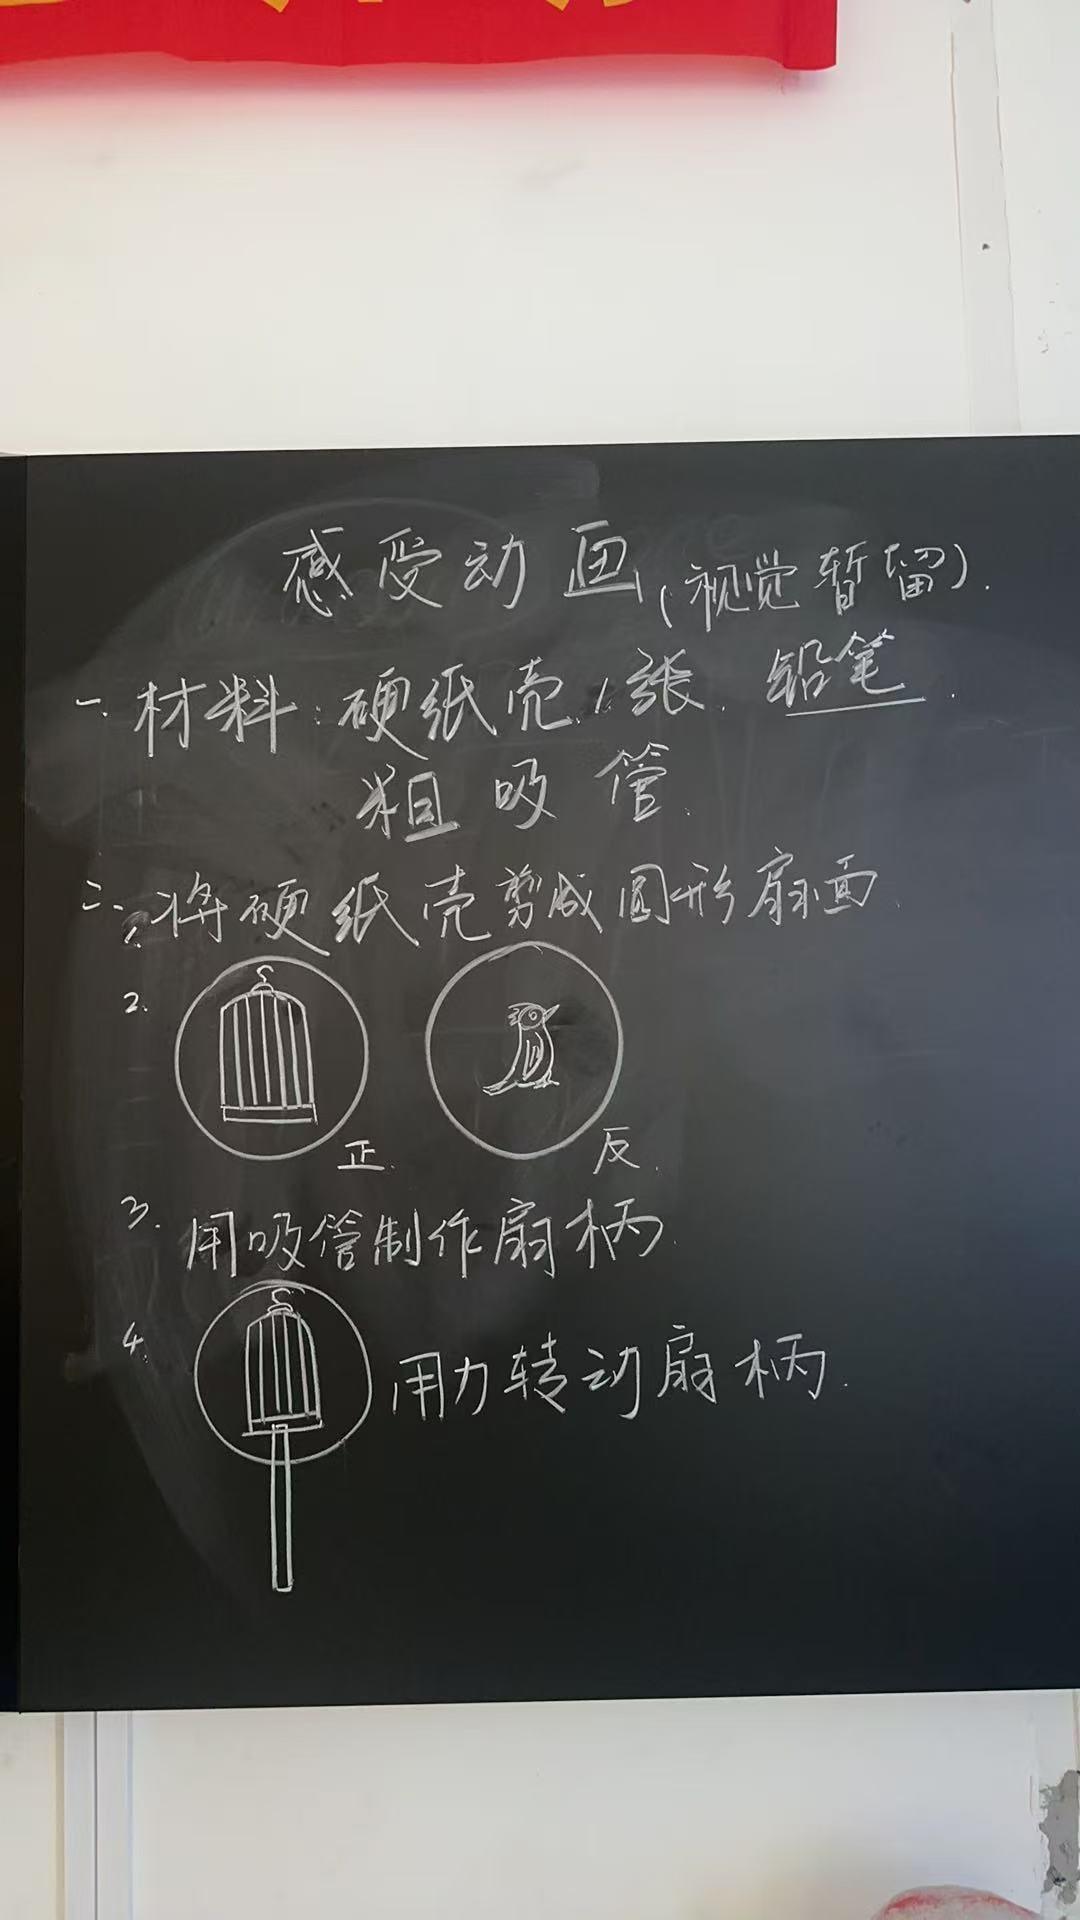 感受动画(视觉暂留).
一.材料:硬纸壳1张.铅笔.
粗吸管.
二、将硬纸壳剪成圆形扇面.
2.
正.
反.
3.用吸管制作扇柄.
4.用力转动扇柄.